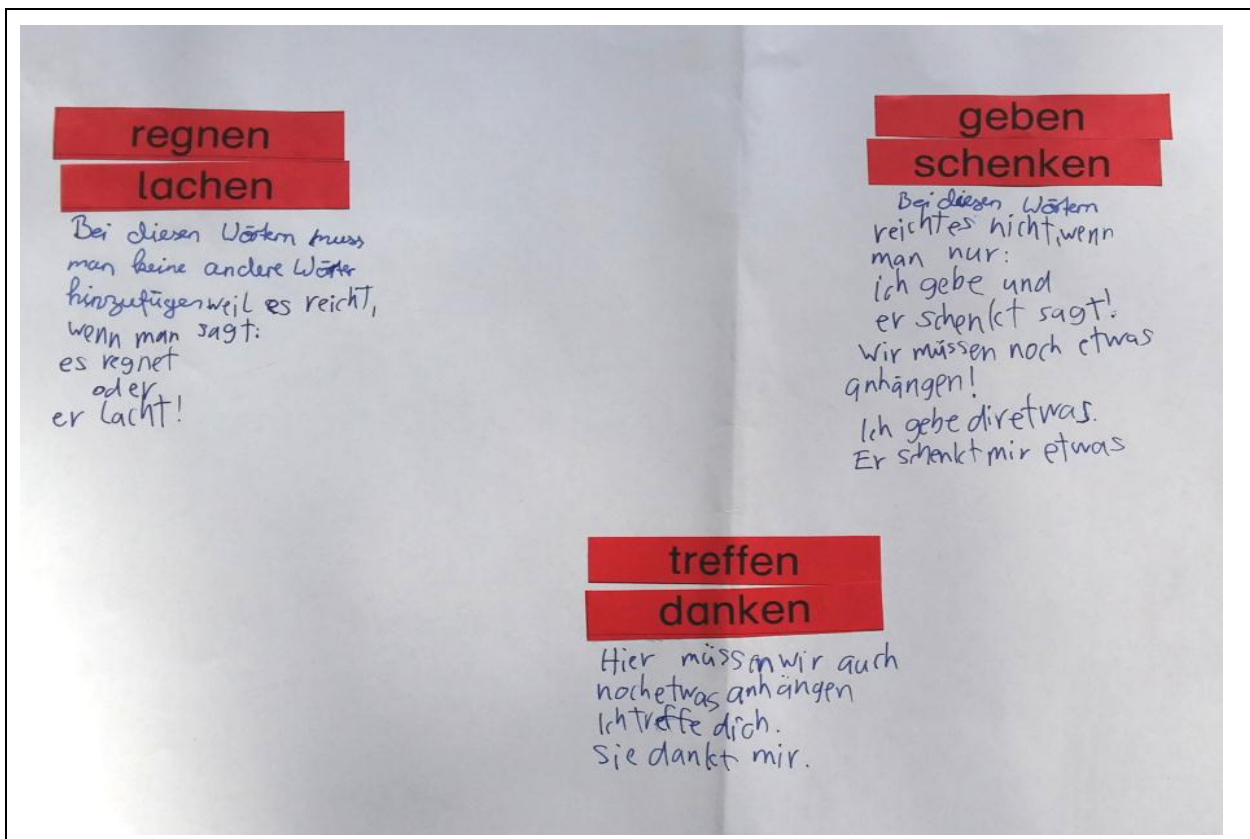 regnen
lachen
Bei diesen Wörtern muss
man keine andere Wörter
hinzufügen weil es reicht,
wenn man sagt:
es regnet
oder
er lacht!
geben
schenken
Bei diesen Wörtern
reicht es nicht, wenn
man nur:
ich gebe und
er schenkt sagt!
Wir müssen noch etwas
anhängen!
Ich gebe dir etwas.
Er schenkt mir etwas
treffen
danken
Hier müssen wir auch
noch etwas anhängen
Ich treffe dich.
Sie dankt mir.